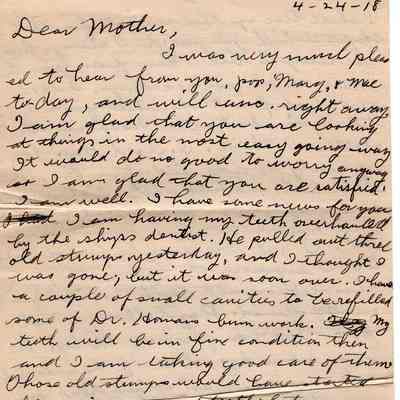 4-24-18
Dear Mother,
I was very much pleas
ed to hear from you, pop, Mary, & Mae
to-day, and will ans. right away.
I am glad that you are looking
at things in the most easy going way
It would do no good to worry anyway
so I am glad that you are satisfied.
I am well. I have some news for you
I had I am having my teeth overhauled
by the ships dentist. He pulled out three
old stumps yesterday, and I thought I
was gone, but it was soon over. I have
a couple of small cavities to be refilled
some of Dr. Homans bum work. My
teeth will be in fine condition then
and I am taking good care of them
Those old stumps would have started